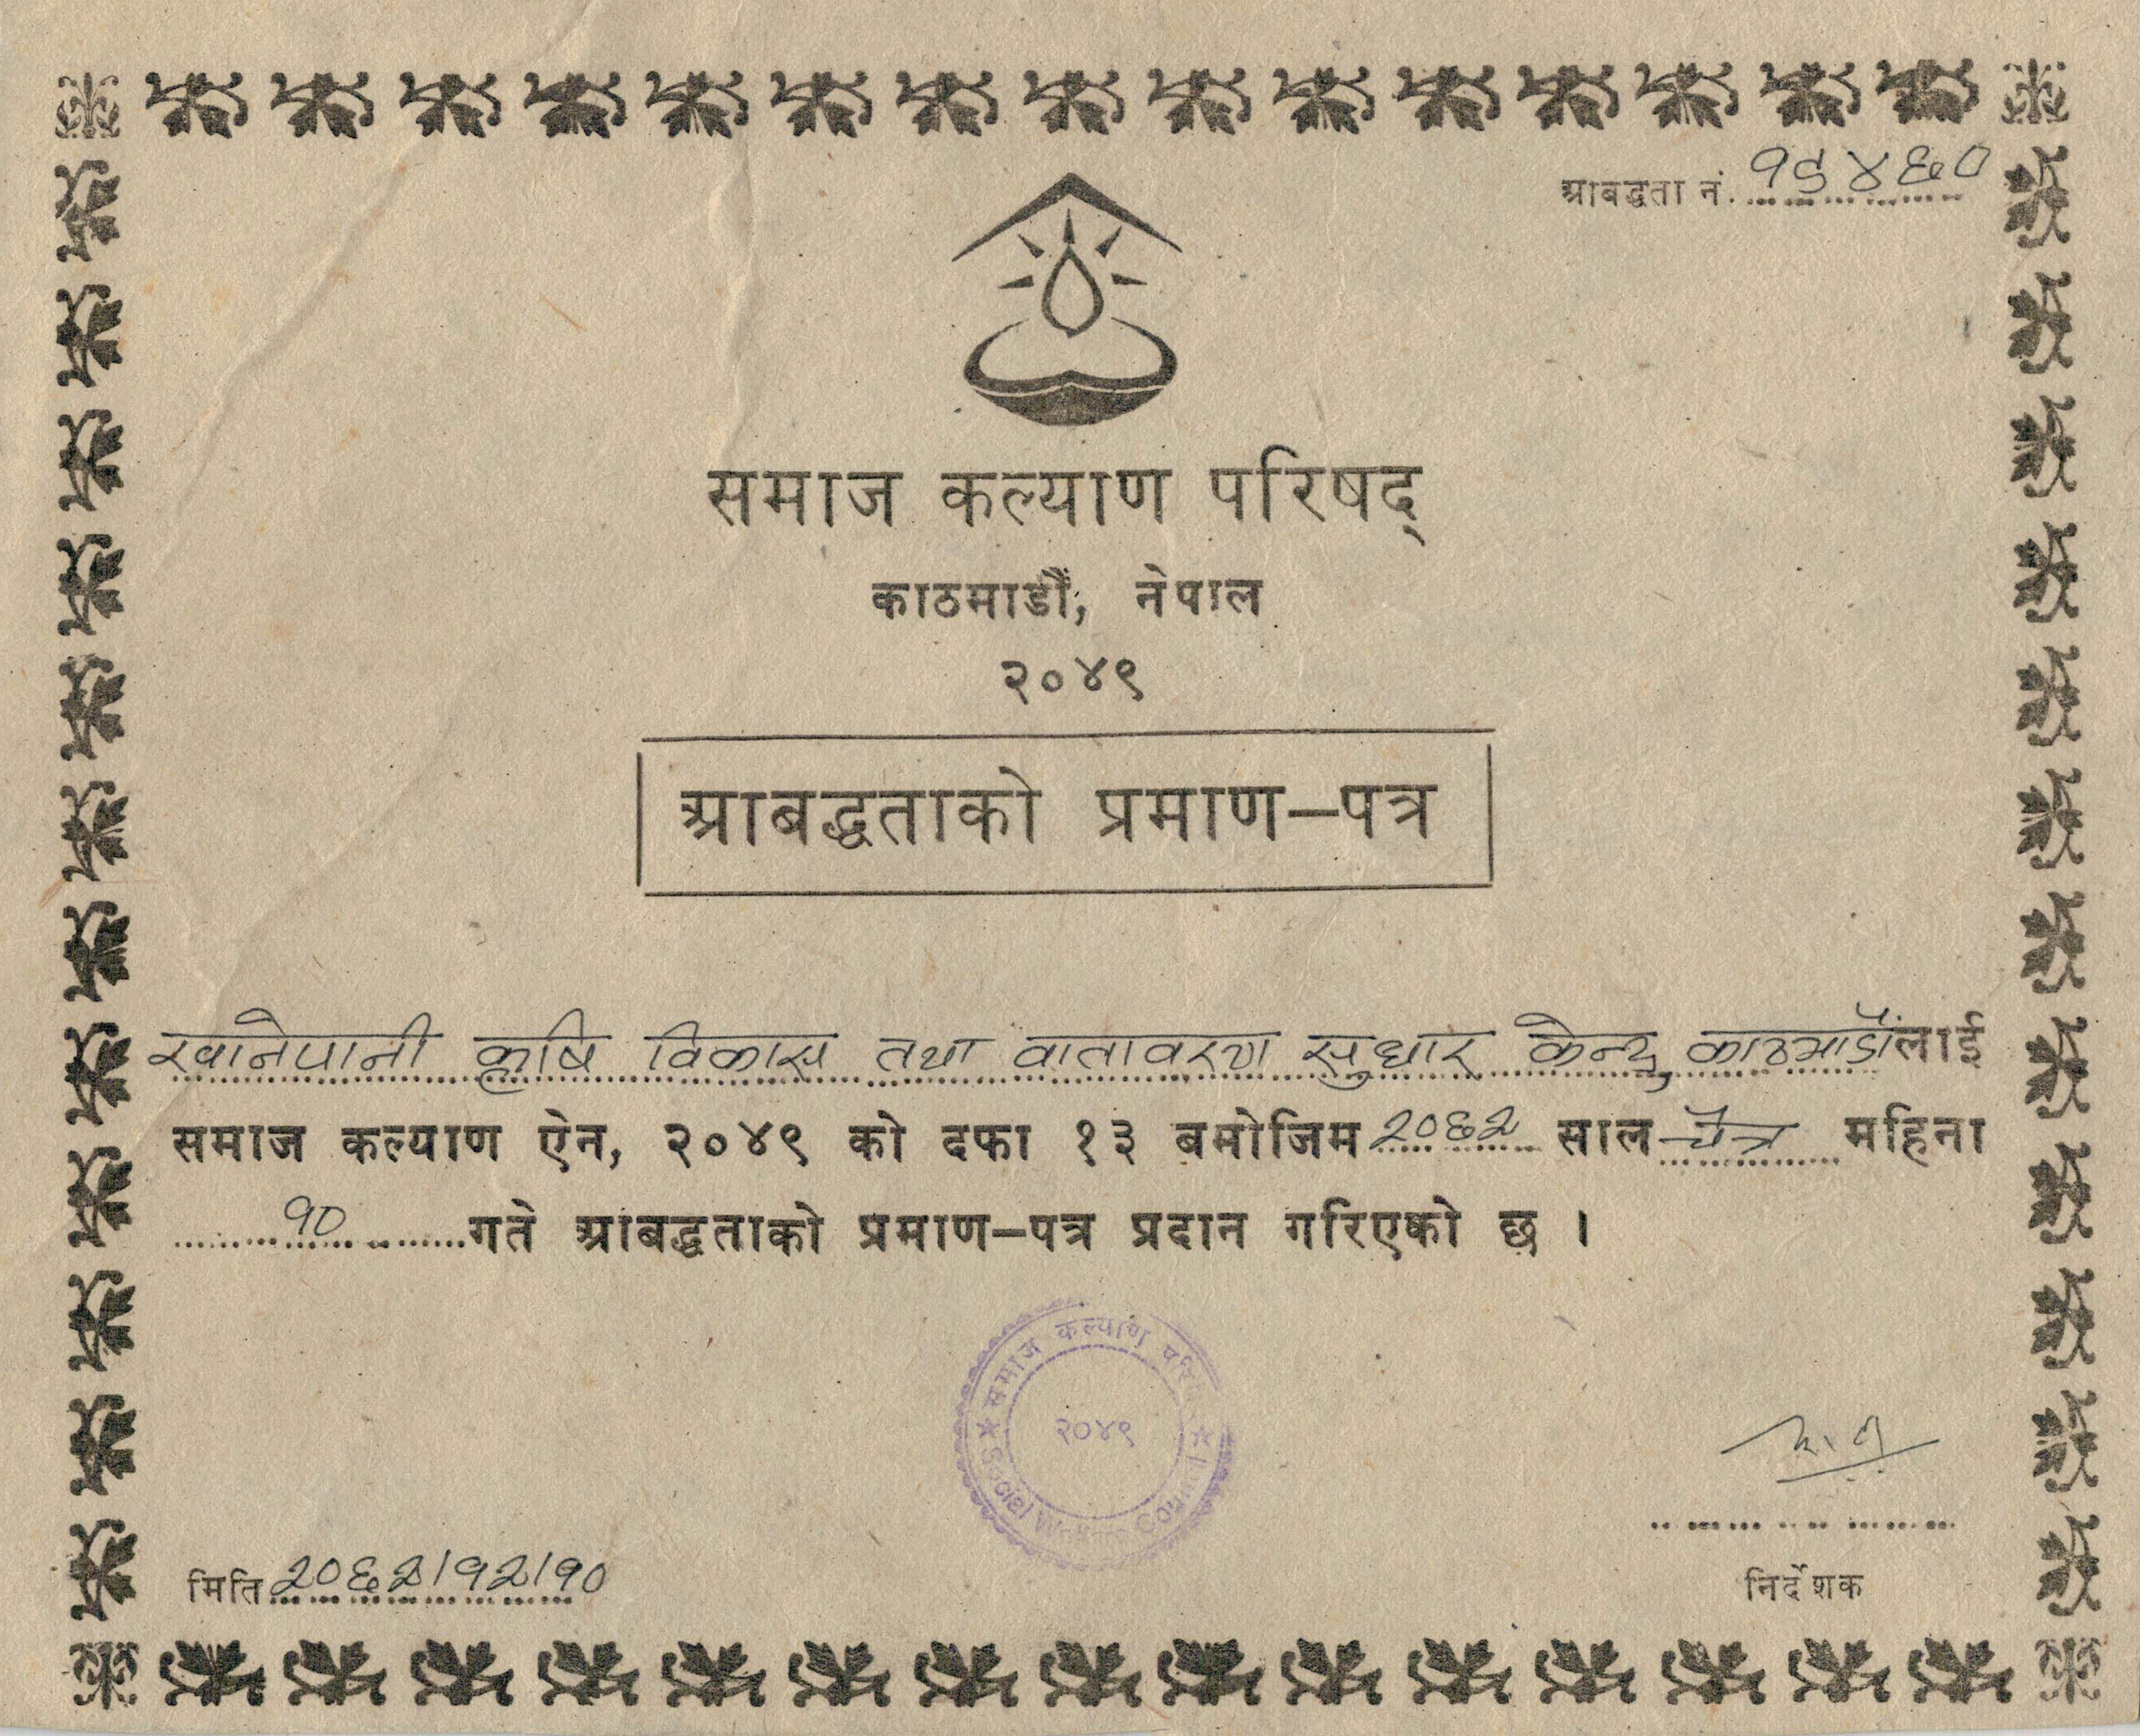 आबद्धता नं. १९४६०
समाज कल्याण परिषद्
काठमाडौं, नेपाल
२०४९
आबद्धताको प्रमाण–पत्र
खानेपानी कृषि विकास तथा वातावरण सुधार केन्द्र, काठमाडौंलाई
समाज कल्याण ऐन, २०४९ को दफा १३ बमोजिम २०६२ साल चैत्र महिना
१० गते आबद्धताको प्रमाण–पत्र प्रदान गरिएको छ ।
समाज कल्याण परिषद्
२०४९
Social Welfare Council
मिति २०६२।१२।१०
निर्देशक